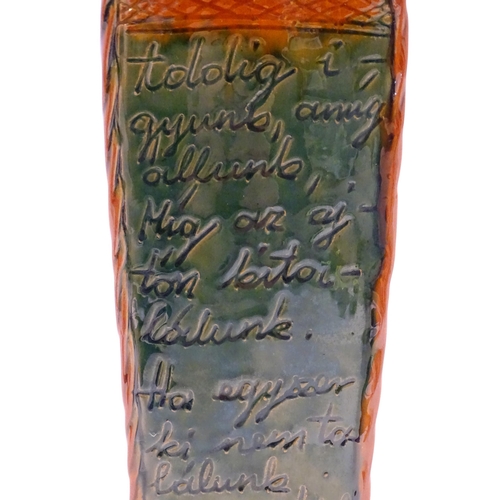 toddig i-
gyunk, amig
állunk,
Mig az aj-
tón kitai-
lálunk.
Ha egyszer
ki nem ta
lálunk,